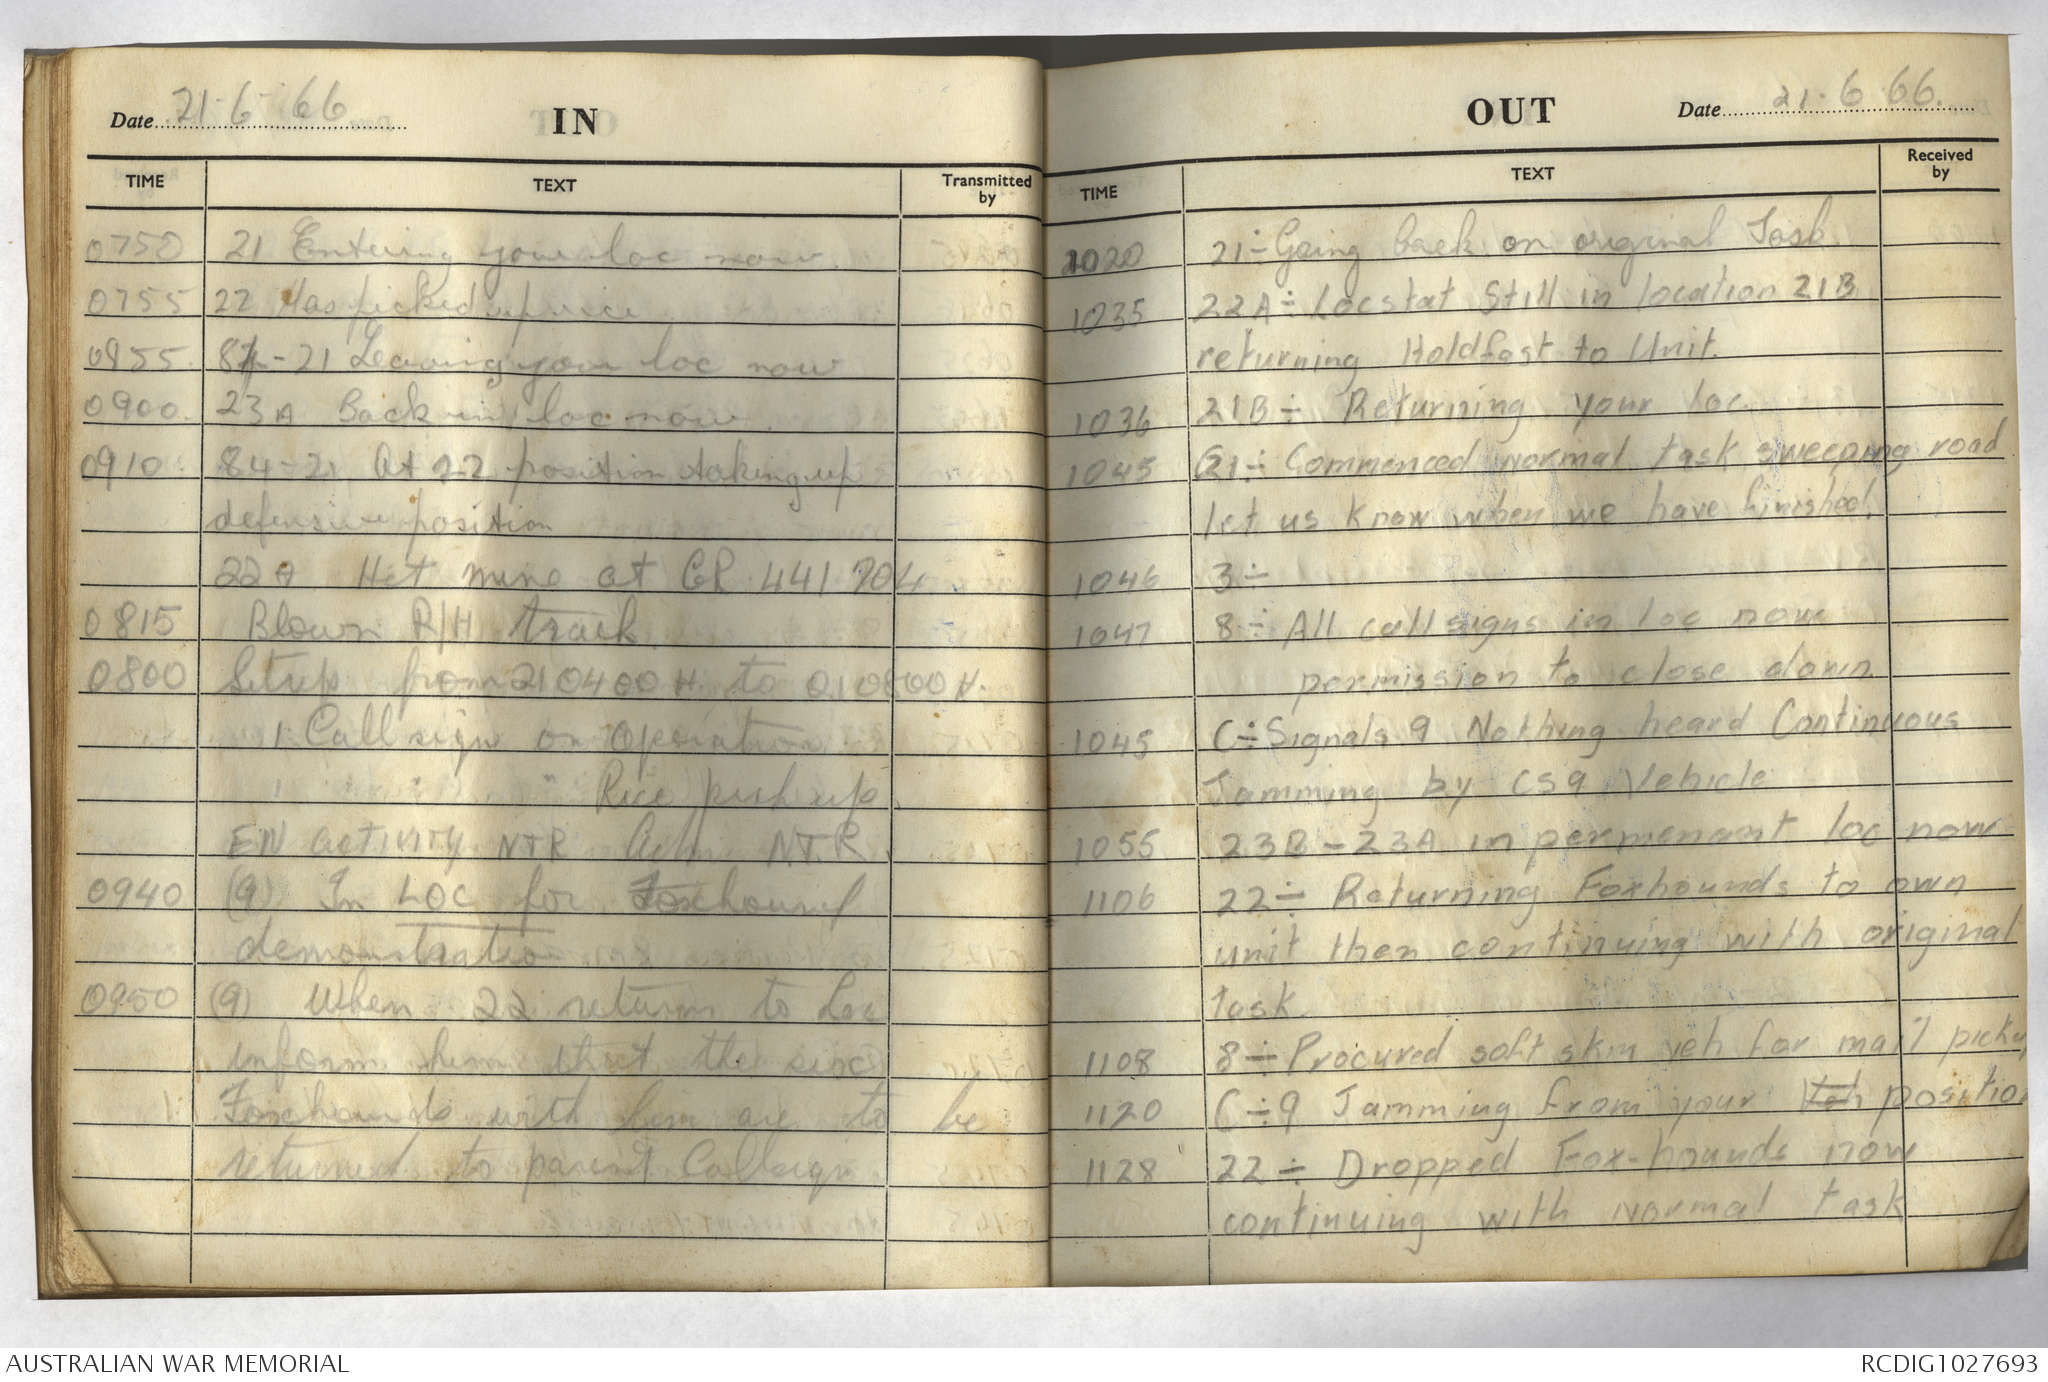 Date 21-6-66 IN
TIME TEXT Transmitted by
0750 21 Entering your loc now.
0755 22 Has picked up rice
0855. 84-21 Leaving your loc now
0900. 23A Back in loc now.
0910. 84-21 At 22 position taking up
defensive position
22A Hit mine at GR 441704
0815 Blown R/H track.
0800 Sitrep from 210400H to 210800H.
1 Call sign on Operation
1 " " " Rice pick up.
EN activity NTR NTR.
0940 (9) In LOC for Foxhound
demonstration
0950 (9) When 22 returns to Loc
inform him that the six
Foxhounds with him are to be
returned to parent Callsign
OUT Date 21.6.66.
TIME TEXT Received by
1020 21÷ Going back on original Task.
1035 22A÷ Locstat Still in location 21B
returning Holdfast to Unit.
1036 21B÷ Returning your loc.
1045 21÷ Commenced normal task sweeping road
let us know when we have finished.
1046 3÷
1047 8÷ All callsigns in loc now
permission to close down.
1045 C÷ Signals 9 Nothing heard Continuous
Jamming by CS9 Vehicle
1055 23B-23A in permenant loc now
1106 22÷ Returning Foxhounds to own
unit then continuing with original
task.
1108 8÷ Procured soft skin veh for mail pickup
1120 C÷9 Jamming from your Veh position
1128 22÷ Dropped Fox-hounds now
continuing with normal task
AUSTRALIAN WAR MEMORIAL RCDIG1027693